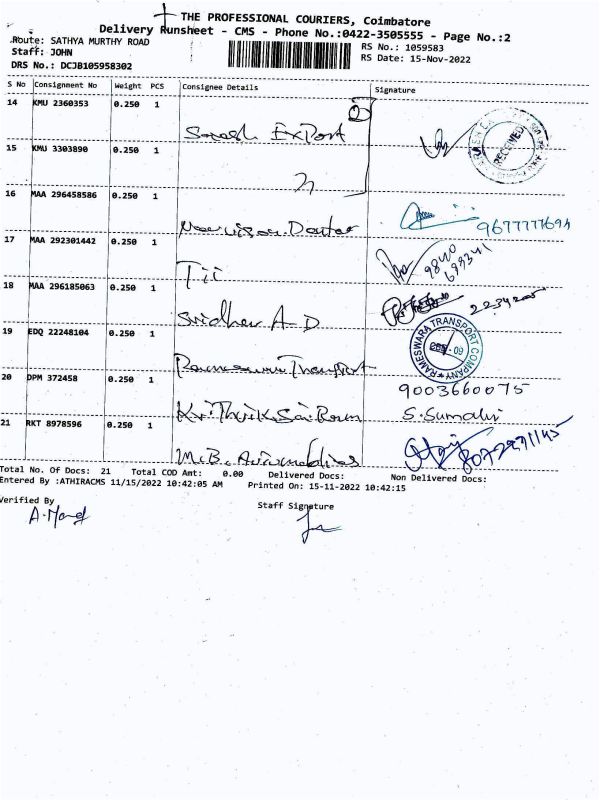 THE PROFESSIONAL COURIERS, Coimbatore
Delivery Runsheet - CMS - Phone No.:0422-3505555 - Page No.:2
Route: SATHYA MURTHY ROAD
RS No.: 1059583
Staff: JOHN
RS Date: 15-Nov-2022
DRS No.: DCJB105958302
S No Consignment No Weight PCS Consignee Details Signature
14 KMU 2360353 0.250 1
Export
RECEIVED
15 KMU 3303890 0.250 1
16 MAA 296458586 0.250 1
9677777694
17 MAA 292301442 0.250 1
Tii
9840
699341
18 MAA 296185063 0.250 1
Sridhar A D
19 EDQ 22248104 0.250 1
Transport
RAMESWARA TRANSPORT COMPANY
20 DPM 372458 0.250 1
9003660075
21 RKT 8978596 0.250 1
M.B.
Total No. Of Docs: 21 Total COD Amt: 0.00 Delivered Docs: Non Delivered Docs:
Entered By :ATHIRACMS 11/15/2022 10:42:05 AM Printed On: 15-11-2022 10:42:15
Verified By
Staff Signature